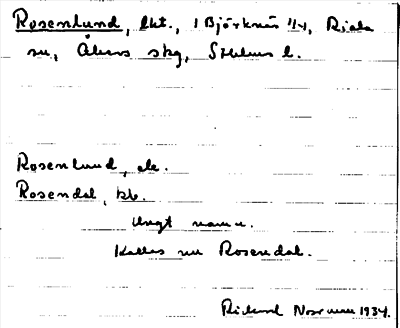 Rosenlund, lht., 1 Björknäs 1/4, Riala
sn, Åkers skg, Sthlms l.
Rosenlund, ek.
Rosendal, kb.
Ungt namn.
Kallas nu Rosendal.
Rickard Norrman 1934.